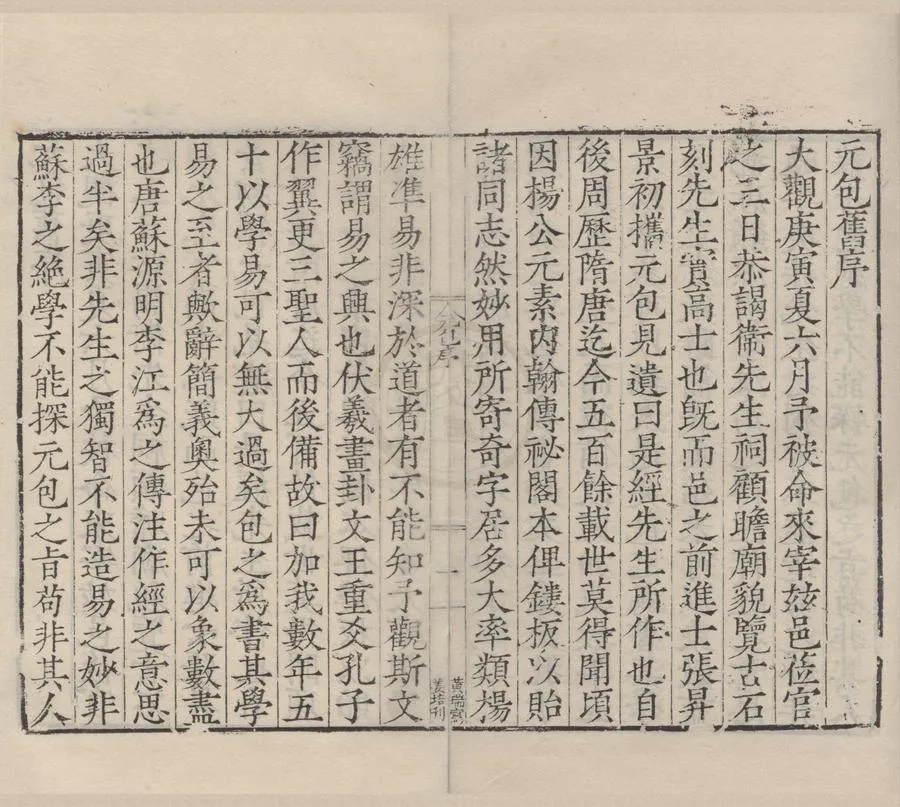 元包舊序
大觀庚寅夏六月予被命來宰玆邑莅官
之三日恭謁衞先生祠顧瞻廟貌覽古石
刻先生實高士也旣而邑之前進士張昇
景初攜元包見遺曰是經先生所作也自
後周歷隋唐迄今五百餘載世莫得聞頃
因楊公元素内翰傳祕閣本俾鏤板以貽
諸同志然妙用所寄奇字居多大率類揚
雄準易非深於道者有不能知予觀斯文
竊謂易之興也伏羲畫卦文王重爻孔子
作翼更三聖人而後備故曰加我數年五
十以學易可以無大過矣包之爲書其學
易之至者歟辭簡義奧殆未可以象數盡
也唐蘇源明李江爲之傳注作經之意思
過半矣非先生之獨智不能造易之妙非
蘇李之絶學不能探元包之旨苟非其人
序
一
黄瑞
姜培刊